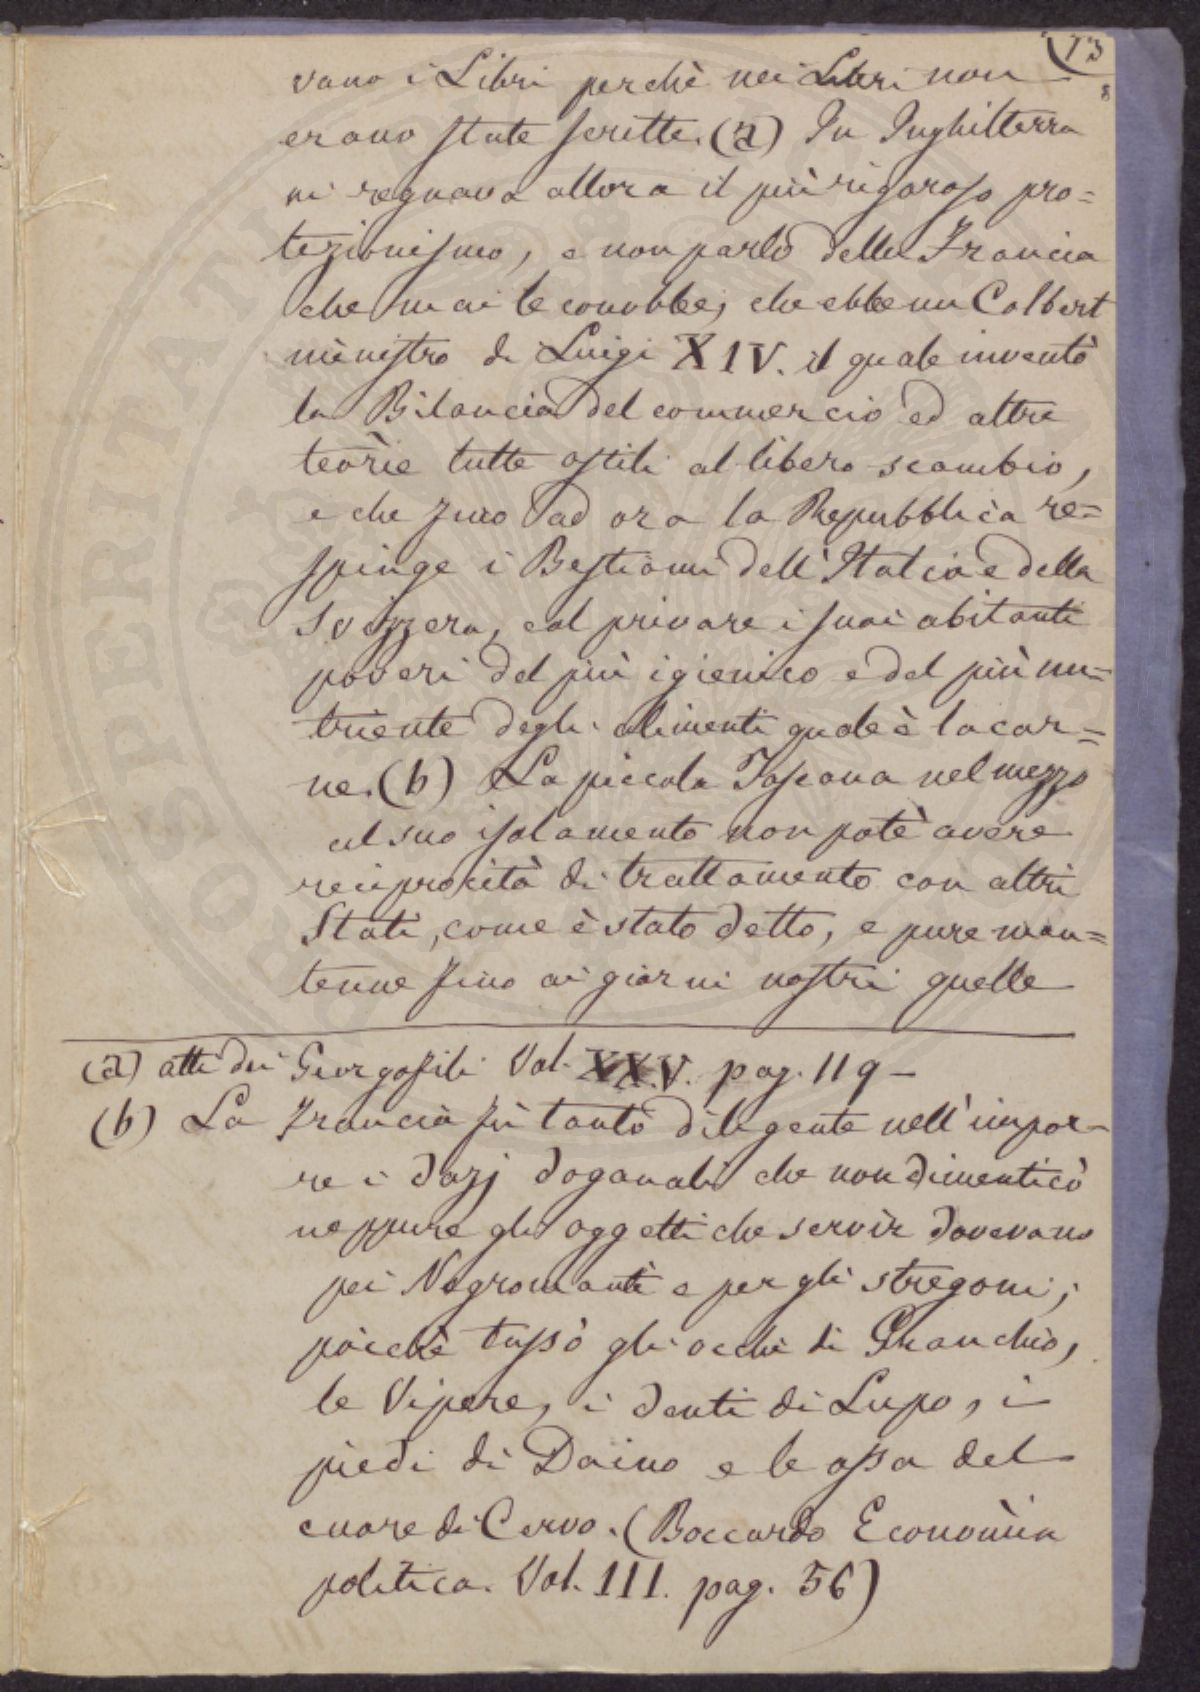 13
8
vano i Libri perchè nei Libri non
erano state scritte. (a) In Inghilterra
vi regnava allora il più rigoroso pro=
tezionismo, e non parlo della Francia
che mai le conobbe, che ebbe un Colbert
ministro di Luigi XIV. il quale inventò
la Bilancia del commercio ed altre
teorie tutte ostili al libero scambio,
e che fino ad ora la Repubblica re=
spinge i Bestiami dell'Italia e della
Svizzera, col privare i suoi abitanti
poveri del più igienico e del più nu=
triente degli alimenti quale è la car=
ne. (b) La piccola Toscana nel mezzo
al suo isolamento non potè avere
reciprocità di trattamento con altri
Stati, come è stato detto, e pure man=
tenne fino ai giorni nostri quelle
(a) atti dei Georgofili Vol. XXV. pag. 119 —
(b) La Francia fù tanto diligente nell'impor=
re i dazj doganali che non dimenticò
neppure gli oggetti che servir dovevano
pei Negromanti e per gli stregoni;
poichè tassò gli occhi di Granchio,
le Vipere, i denti di Lupo, i
piedi di Daino e le ossa del
cuore di Cervo. (Boccardo Economia
politica. Vol. III. pag. 56)
PROSPERITATI